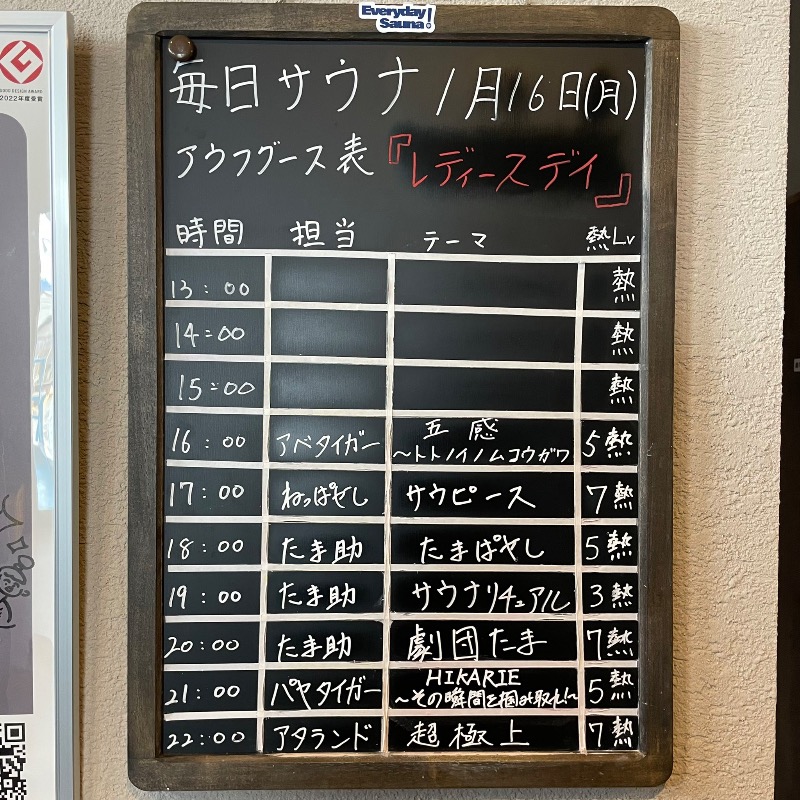 Everyday Sauna!
GOOD DESIGN AWARD
2022年度受賞
毎日サウナ 1月16日(月)
アウフグース表『レディースデイ』
時間 担当 テーマ 熱Lv
13:00 熱
14:00 熱
15:00 熱
16:00 アベタイガー 五感 ~トトノイノムコウガワ 5熱
17:00 ねっぱやし サウピース 7熱
18:00 たま助 たまぱやし 5熱
19:00 たま助 サウナリチュアル 3熱
20:00 たま助 劇団たま 7熱
21:00 パヤタイガー HIKARIE ~その瞬間を掴み取れ!~ 5熱
22:00 アタランド 超極上 7熱